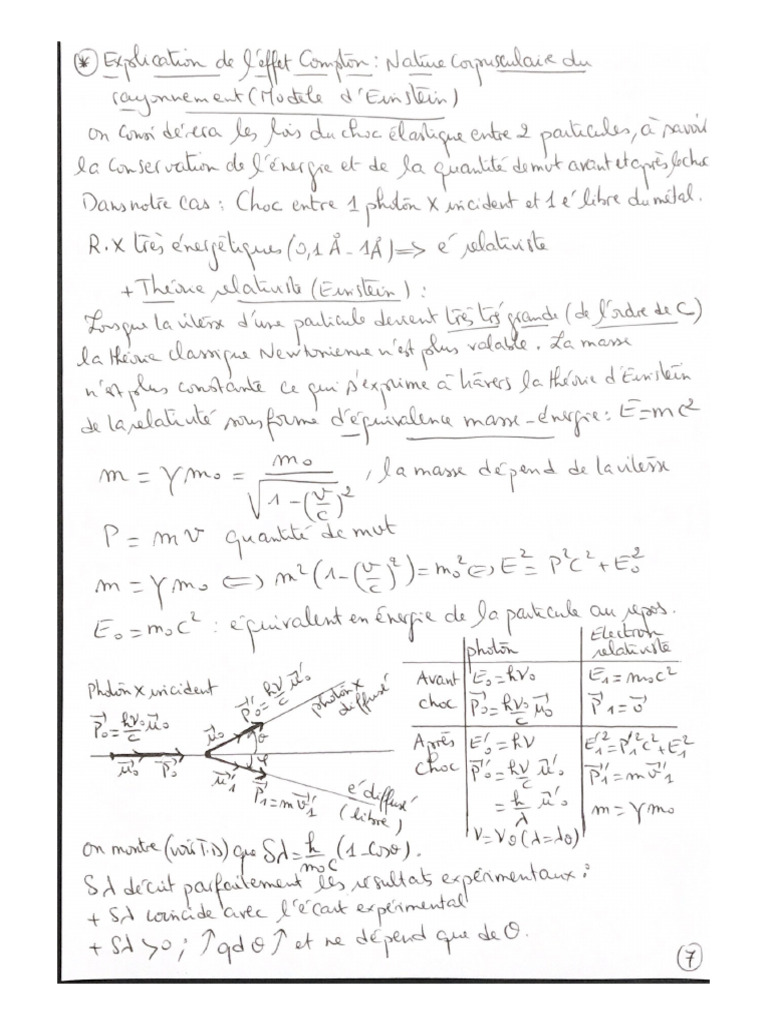 * Explication de l'effet Compton : Nature Corpusculaire du
rayonnement (Modèle d'Einstein)
on considèrera les lois du choc élastique entre 2 particules, à savoir
la Conservation de l'énergie et de la quantité de mvt avant et après le choc
Dans notre cas : Choc entre 1 photon X incident et 1 é libre du métal.
R.X très énergétiques (0,1 Å - 1 Å) => é relativiste
+ Théorie relativiste (Einstein) :
Lorsque la vitesse d'une particule devient très très grande (de l'ordre de C)
la théorie classique Newtonienne n'est plus valable. La masse
n'est plus constante ce qui s'exprime à travers la théorie d'Einstein
de la relativité sous forme d'équivalence masse-énergie : E = mc²
m = γ m₀ = m₀ / √(1 - (v/c)²) , la masse dépend de la vitesse
P = m v quantité de mvt
m = γ m₀ <=> m² (1 - (v/c)²) = m₀² <=> E² = P²C² + E₀²
E₀ = m₀c² : équivalent en énergie de la particule au repos.
photon
Electron relativiste
Avant choc
E₀ = hν₀
P⃗₀ = hν₀/c u⃗₀
E₁ = m₀c²
P⃗₁ = 0⃗
Après choc
E'₀ = hν
P⃗'₀ = hν/c u⃗'₀
= h/λ u⃗'₀
ν = νθ (λ = λθ)
E'₁² = P'₁²c² + E₁²
P⃗'₁ = m v⃗'₁
m = γ m₀
Photon X incident
P⃗₀ = hν₀/c u⃗₀
u⃗₀ P⃗₀
u⃗'₀
P⃗'₀ = hν/c u⃗'₀
photon X diffusé
θ
φ
u⃗'₁
P⃗'₁ = m v⃗'₁
é diffusé (libre)
on montre (voir T.D) que Sλ = h/m₀c (1 - cosθ).
Sλ décrit parfaitement les résultats expérimentaux :
+ Sλ coïncide avec l'écart expérimental
+ Sλ > 0 ; ↑ qd θ ↑ et ne dépend que de θ.
7